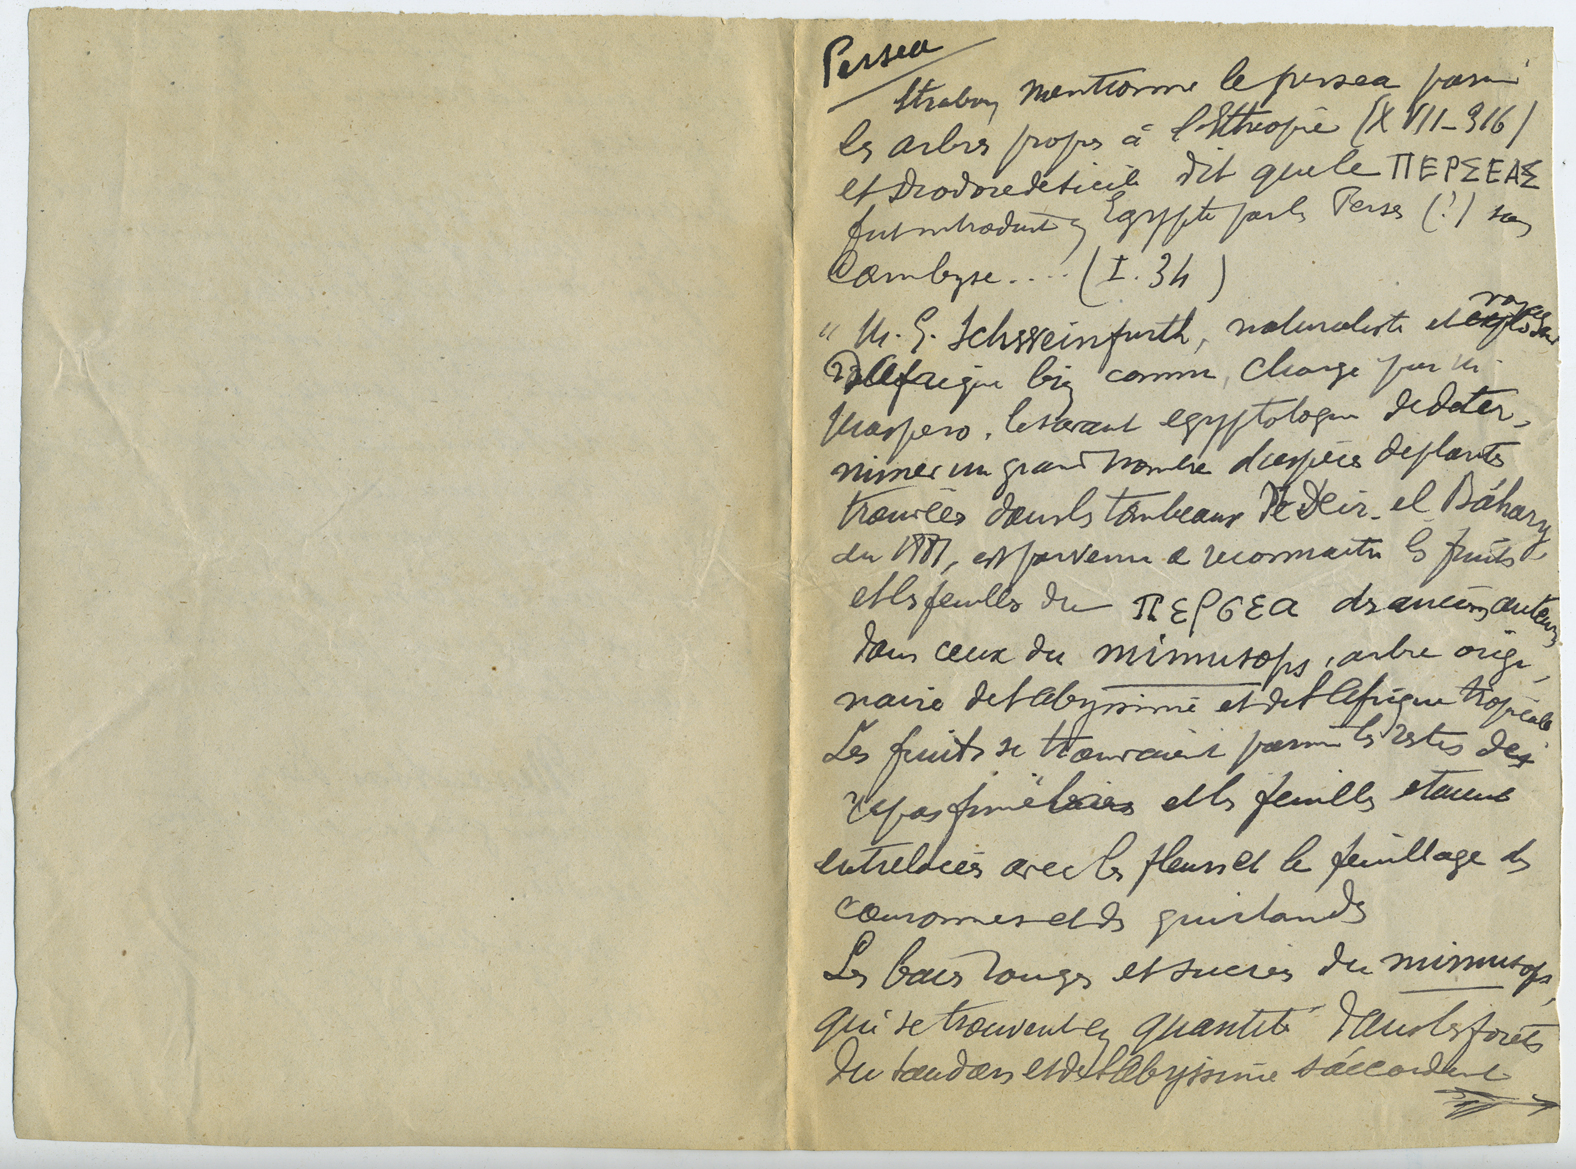 Persea
Strabon mentionne le persea parmi
les arbres propres à l'Ethiopie (XVII-316)
et Diodore de Sicile dit que le ΠΕΡΣΕΑΣ
fut introduit en Egypte par les Perses (?) sous
Cambyse.... (I. 34)
" M. G. Schweinfurth, naturaliste et voyageur
d'Afrique bien connu, chargé par M.
Maspero, le savant egyptologue de deter-
miner un grand nombre d'espèces de plantes
trouvées dans les tombeaux de Deir-el Báhary
du 1881, est parvenu a reconnaitre les fruits
et les feuilles du ΠΕΡΣΕΑ des anciens auteurs
dans ceux du mimusops, arbre origi-
naire de l'Abyssinie et de l'Afrique tropicale
Les fruits se trouvaient parmi les restes des
repas funéraires et les feuilles etaient
entrelacées avec les fleurs et le feuillage des
couronnes et des guirlandes
Les baies rouges et sucrées du mimusops,
qui se trouvent en quantité dans les forets
du Soudan et de l'Abyssinie s'accordent